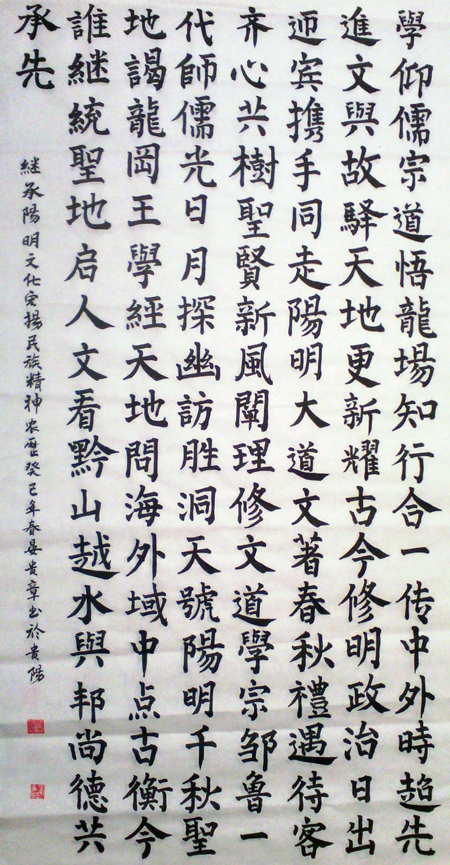 學仰儒宗道悟龍場知行合一传中外時趋先
進文與故驿天地更新耀古今修明政治日出
迎宾携手同走陽明大道文著春秋禮遇待客
齐心共樹聖賢新風闡理修文道學宗邹魯一
代師儒光日月探幽訪胜洞天號陽明千秋聖
地謁龍岡王學經天地問海外域中点古衡今
誰継統聖地启人文看黔山越水與邦尚德共
承先
継承陽明文化宏揚民族精神农歷癸巳年春晏贵章书於贵陽